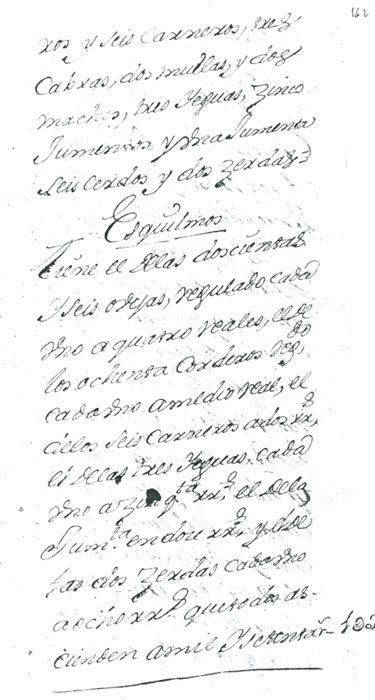 162
ros, y seis carneros, tres
Cabras, dos mullas, y dos
machos, tres Yeguas, zinco
Jumentos y vna Jumenta
seis cerdos y dos zerdas=
Esquilmos
Tiene el de las doscientas
y seis ovejas, regulado cada
vno a quatro reales, el de
los ochenta corderos
cada vno a medio real, el
de los seis carneros a dos rr.s
el de las tres Yeguas, cada
vno a zinq.ta rr.s el de la
Jum.ta en rr.s y el de
las dos zerdas cada vno
a ocho rr.s que todos as-
cienden a mil y setenta